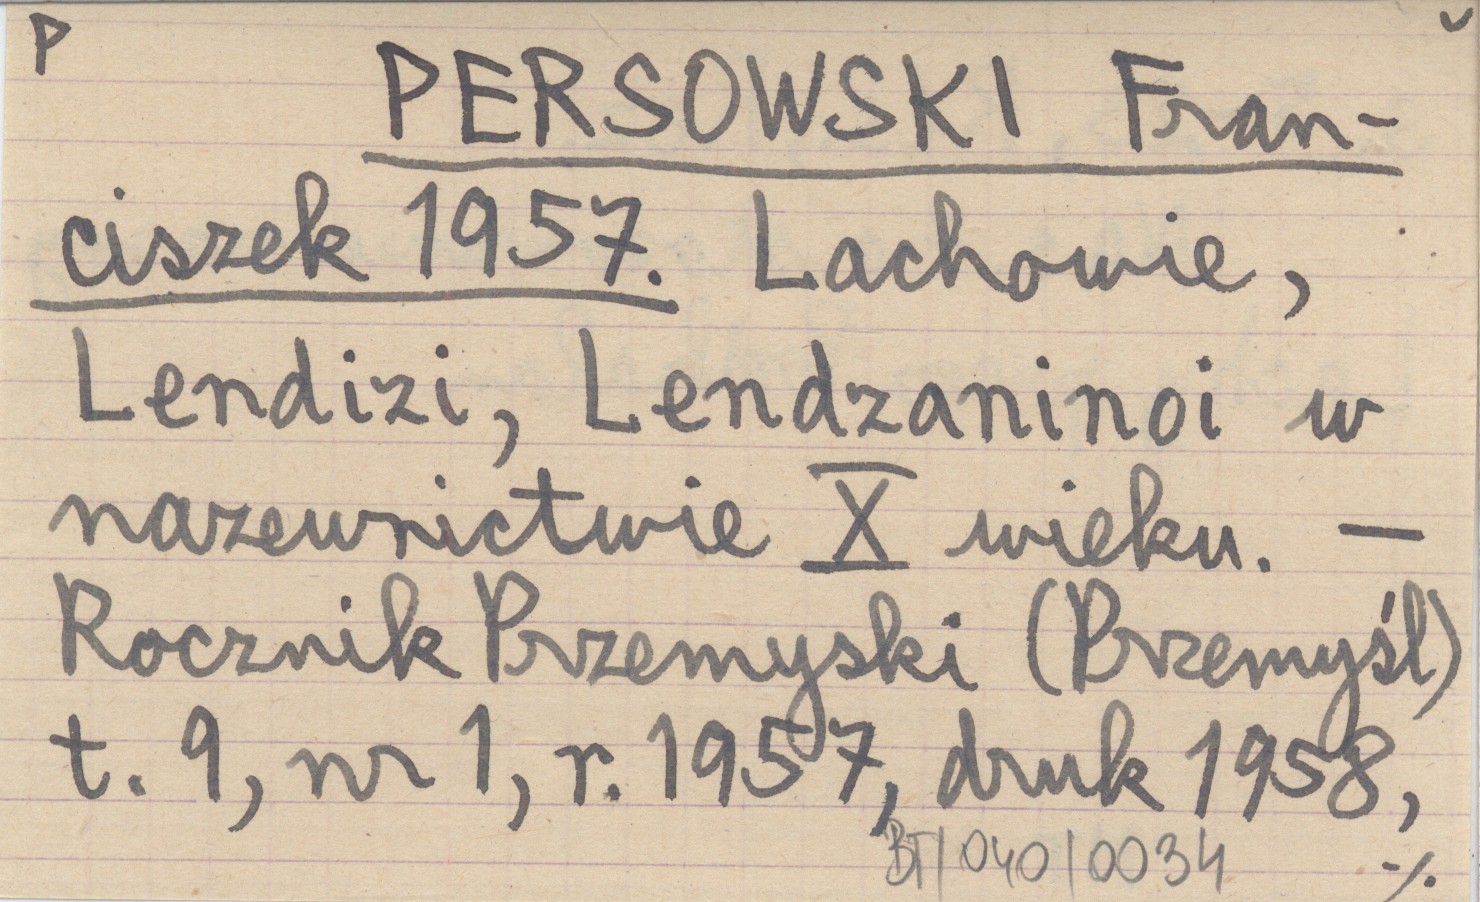 P
PERSOWSKI Fran-
ciszek 1957. Lachowie,
Lendizi, Lendzaninoi w
nazewnictwie X wieku. —
Rocznik Przemyski (Przemyśl)
t. 9, nr 1, r. 1957, druk 1958,
BT/040/0034 -/.